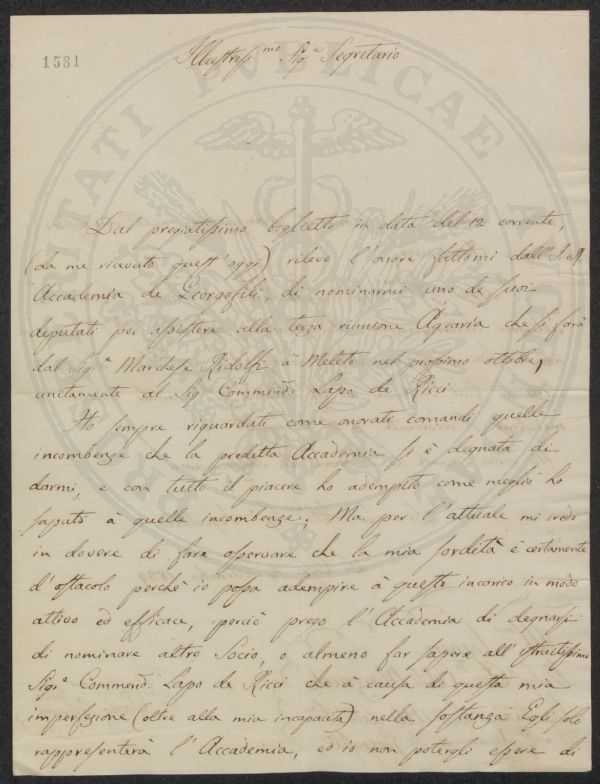 1581
Illustriss.mo Sig.e Segretario
Dal pregiatissimo biglietto in data del 12 corrente,
(da me ricevuto quest'oggi) rilevo l'onore fattomi dall'I. e R.
Accademia de Georgofili, di nominarmi uno de suoi
deputati per assistere alla terza riunione Agraria che si farà
dal Sig.e Marchese Ridolfi à Meleto nel prossimo ottobre,
unitamente al Sig. Commend. Lapo de Ricci
Ho sempre riguardati come onorati comandi quelle
incombenze che la predetta Accademia si è degnata di
darmi, e con tutto il piacere ho adempito come meglio ho
saputo à quelle incombenze; Ma per l'attuale mi credo
in dovere di fare osservare che la mia sordità è certamente
d'ostacolo perchè io possa adempire à questo incarico in modo
attivo ed efficace, perciò prego l'Accademia di degnarsi
di nominare altro Socio, o almeno far sapere all'
Sig.e Commend. Lapo de Ricci che à causa di questa mia
imperfezione (oltre alla mia incapacità) nella sostanza Egli solo
rappresenterà l'Accademia, ed io non potergli essere di
PUBLICAE